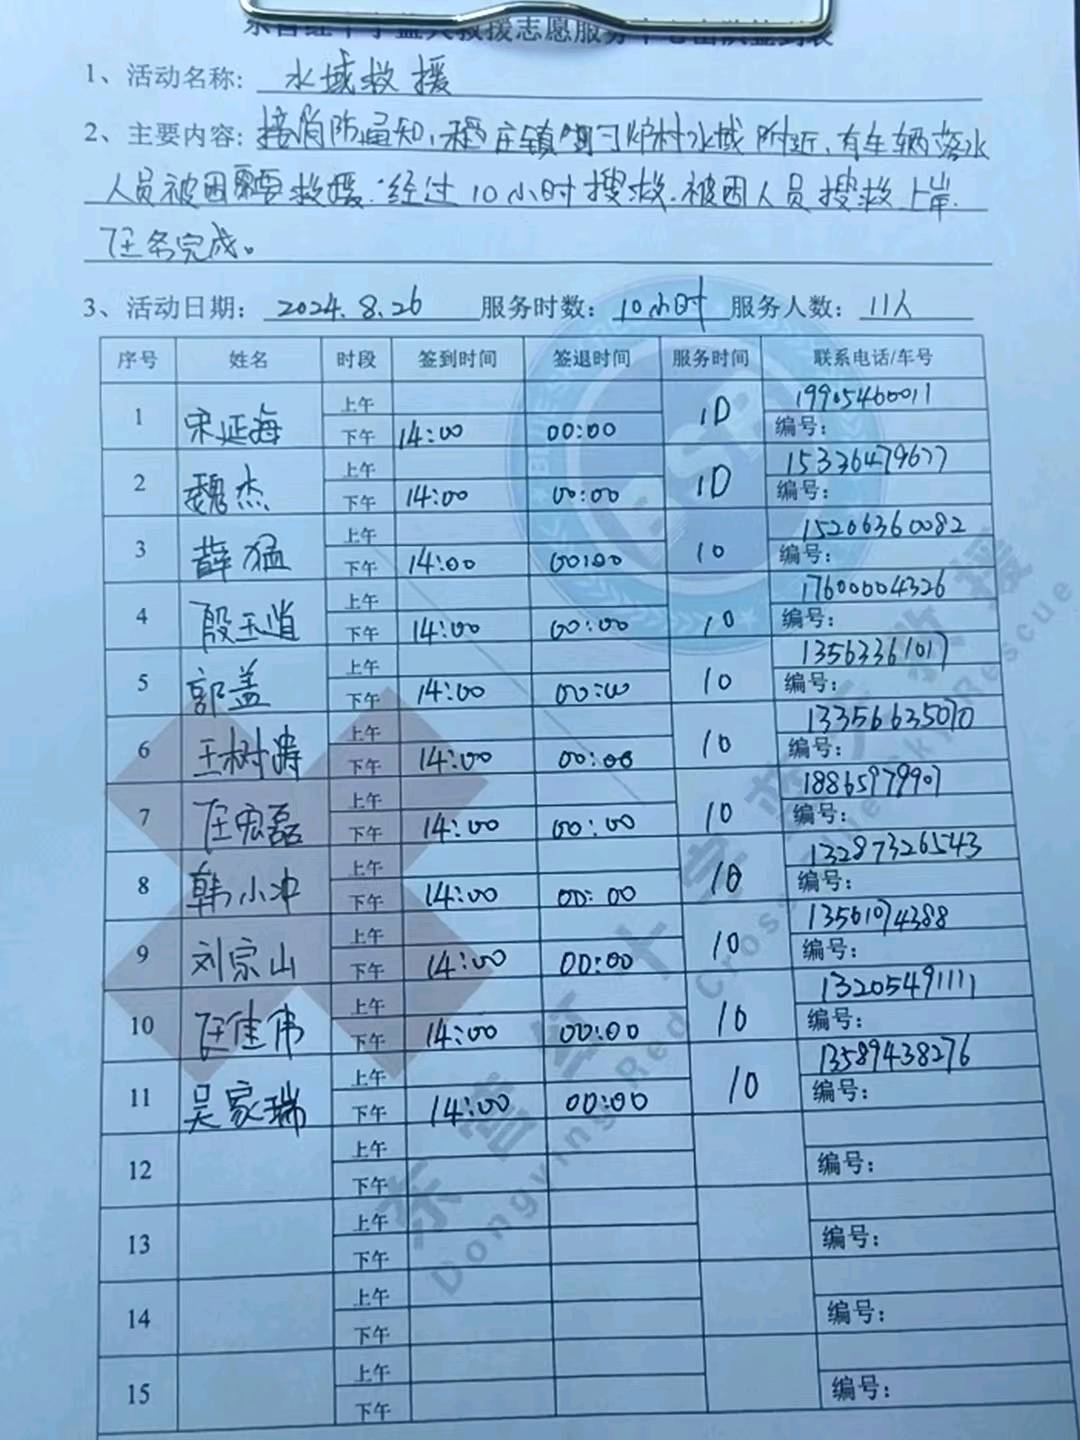 东营红十字蓝天救援志愿服务中心出队签到表
1、活动名称: 水域救援
2、主要内容: 接消防通知,稻庄镇 村水域附近,有车辆落水
人员被困需要救援.经过10小时搜救.被困人员搜救上岸.
任务完成。
3、活动日期: 2024.8.26 服务时数: 10小时 服务人数: 11人
序号 姓名 时段 签到时间 签退时间 服务时间 联系电话/车号
1 宋延海 上午 10 19905460011
下午 14:00 00:00 编号:
2 魏杰 上午 10 15336479677
下午 14:00 00:00 编号:
3 薛猛 上午 10 15206360082
下午 14:00 00:00 编号:
4 殷玉道 上午 10 17600004326
下午 14:00 00:00 编号:
5 郭盖 上午 10 13563361017
下午 14:00 00:00 编号:
6 王树涛 上午 10 13356635070
下午 14:00 00:00 编号:
7 任宏磊 上午 10 18865979907
下午 14:00 00:00 编号:
8 韩小冲 上午 10 13287326543
下午 14:00 00:00 编号:
9 刘宗山 上午 10 13561074388
下午 14:00 00:00 编号:
10 任佳伟 上午 10 13205491111
下午 14:00 00:00 编号:
11 吴家瑞 上午 10 13589438276
下午 14:00 00:00 编号:
12 上午
下午 编号:
13 上午
下午 编号:
14 上午
下午 编号:
15 上午
下午 编号:
BSR
东营红十字蓝天救援
Dongying Red Cross Blue Sky Rescue